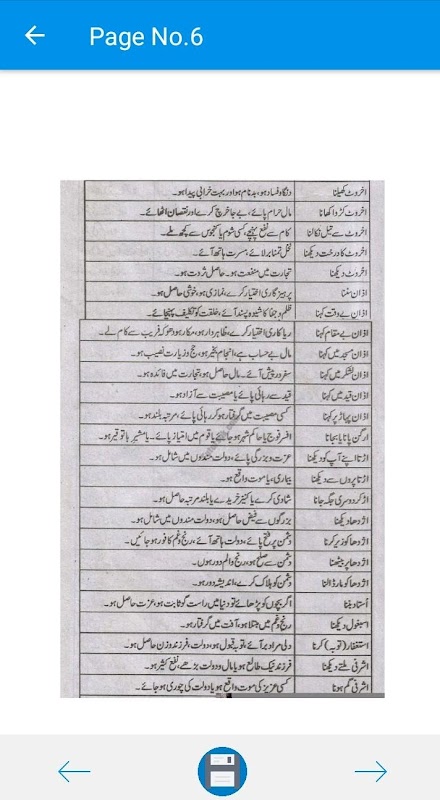 Page No.6
اخروٹ کھیلنا دنگا و فساد ہو، بدنام ہو اور بہت خرابی پیدا ہو۔
اخروٹ کڑوا کھانا مال حرام پائے، بے جا خرچ کرے اور نقصان اٹھائے۔
اخروٹ سے تیل نکالنا کام سے نفع پہنچے، کسی شوم یا کنجوس سے کچھ ملے۔
اخروٹ کا درخت دیکھنا نخل تمنا بر لائے، مسرت ہاتھ آئے۔
اخروٹ دیکھنا تجارت میں منفعت ہو۔ حاصل ثروت ہو۔
اذان سننا پرہیز گاری اختیار کرے، نمازی ہو، خوشی حاصل ہو۔
اذان بے وقت کہنا ظلم و جفا کا شیوہ پسند آئے، خلقت کو تکلیف پہنچائے۔
اذان بے مقام کہنا ریا کاری اختیار کرے، ظاہر دار ہو، مکار ہو دھوکہ فریب سے کام لے۔
اذان مسجد میں کہنا مال بے حساب ہے، انجام بخیر ہو، حج و زیارت نصیب ہو۔
اذان لشکر میں کہنا سفر در پیش آئے۔ مال حاصل ہو، تجارت میں فائدہ ہو۔
اذان قید میں کہنا قید سے رہائی پائے یا مصیبت سے آزاد ہو۔
اذان پہاڑ پر کہنا کسی مصیبت میں گرفتار ہو کر رہائی پائے، مرتبہ بلند ہو۔
ارگن پانا یا بجانا افسر فوج یا حاکم شہر ہو جائے یا قوم میں امتیاز پائے۔ یا مشیر با توقیر ہو۔
اڑتا اپنے آپ کو دیکھنا عزت و بزرگی پائے، دولت مندوں میں شامل ہو۔
اڑتا پروں سے دیکھنا بیماری، یا موت واقع ہو۔
اڑ کر دوسری جگہ جانا شادی کرے یا کنیز خریدے یا بلند مرتبہ حاصل ہو۔
اژدھا دیکھنا بزرگوں سے فیض حاصل ہو، دولت مندوں میں شامل ہو۔
اژدھا کو زیر کرنا دشمن پر فتح پائے، دولت ہاتھ آئے، رنج و غم کافور ہو جائیں۔
اژدھا پر بیٹھنا دشمن سے صلح ہو، رنج و الم دور ہوں۔
اژدھا کو مار ڈالنا دشمن کو ہلاک کرے، اندیشہ دور ہو۔
استاد بننا اگر بچوں کو پڑھائے تو دنیا میں راست گو ثابت ہو، عزت حاصل ہو۔
اسپغول دیکھنا رنج و غم میں مبتلا ہو، آفت میں گرفتار ہو۔
استغفار (توبہ) کرنا دلی مراد بر آئے، توبہ قبول ہو، دولت، فرزند و زن حاصل ہو۔
اشرفی ملتے دیکھنا فرزند نیک طالع ہو یا مال و دولت بڑھے، نفع کثیر ہو۔
اشرفی گم ہونا کسی عزیز کی موت واقع ہو یا دولت کی چوری ہو جائے۔